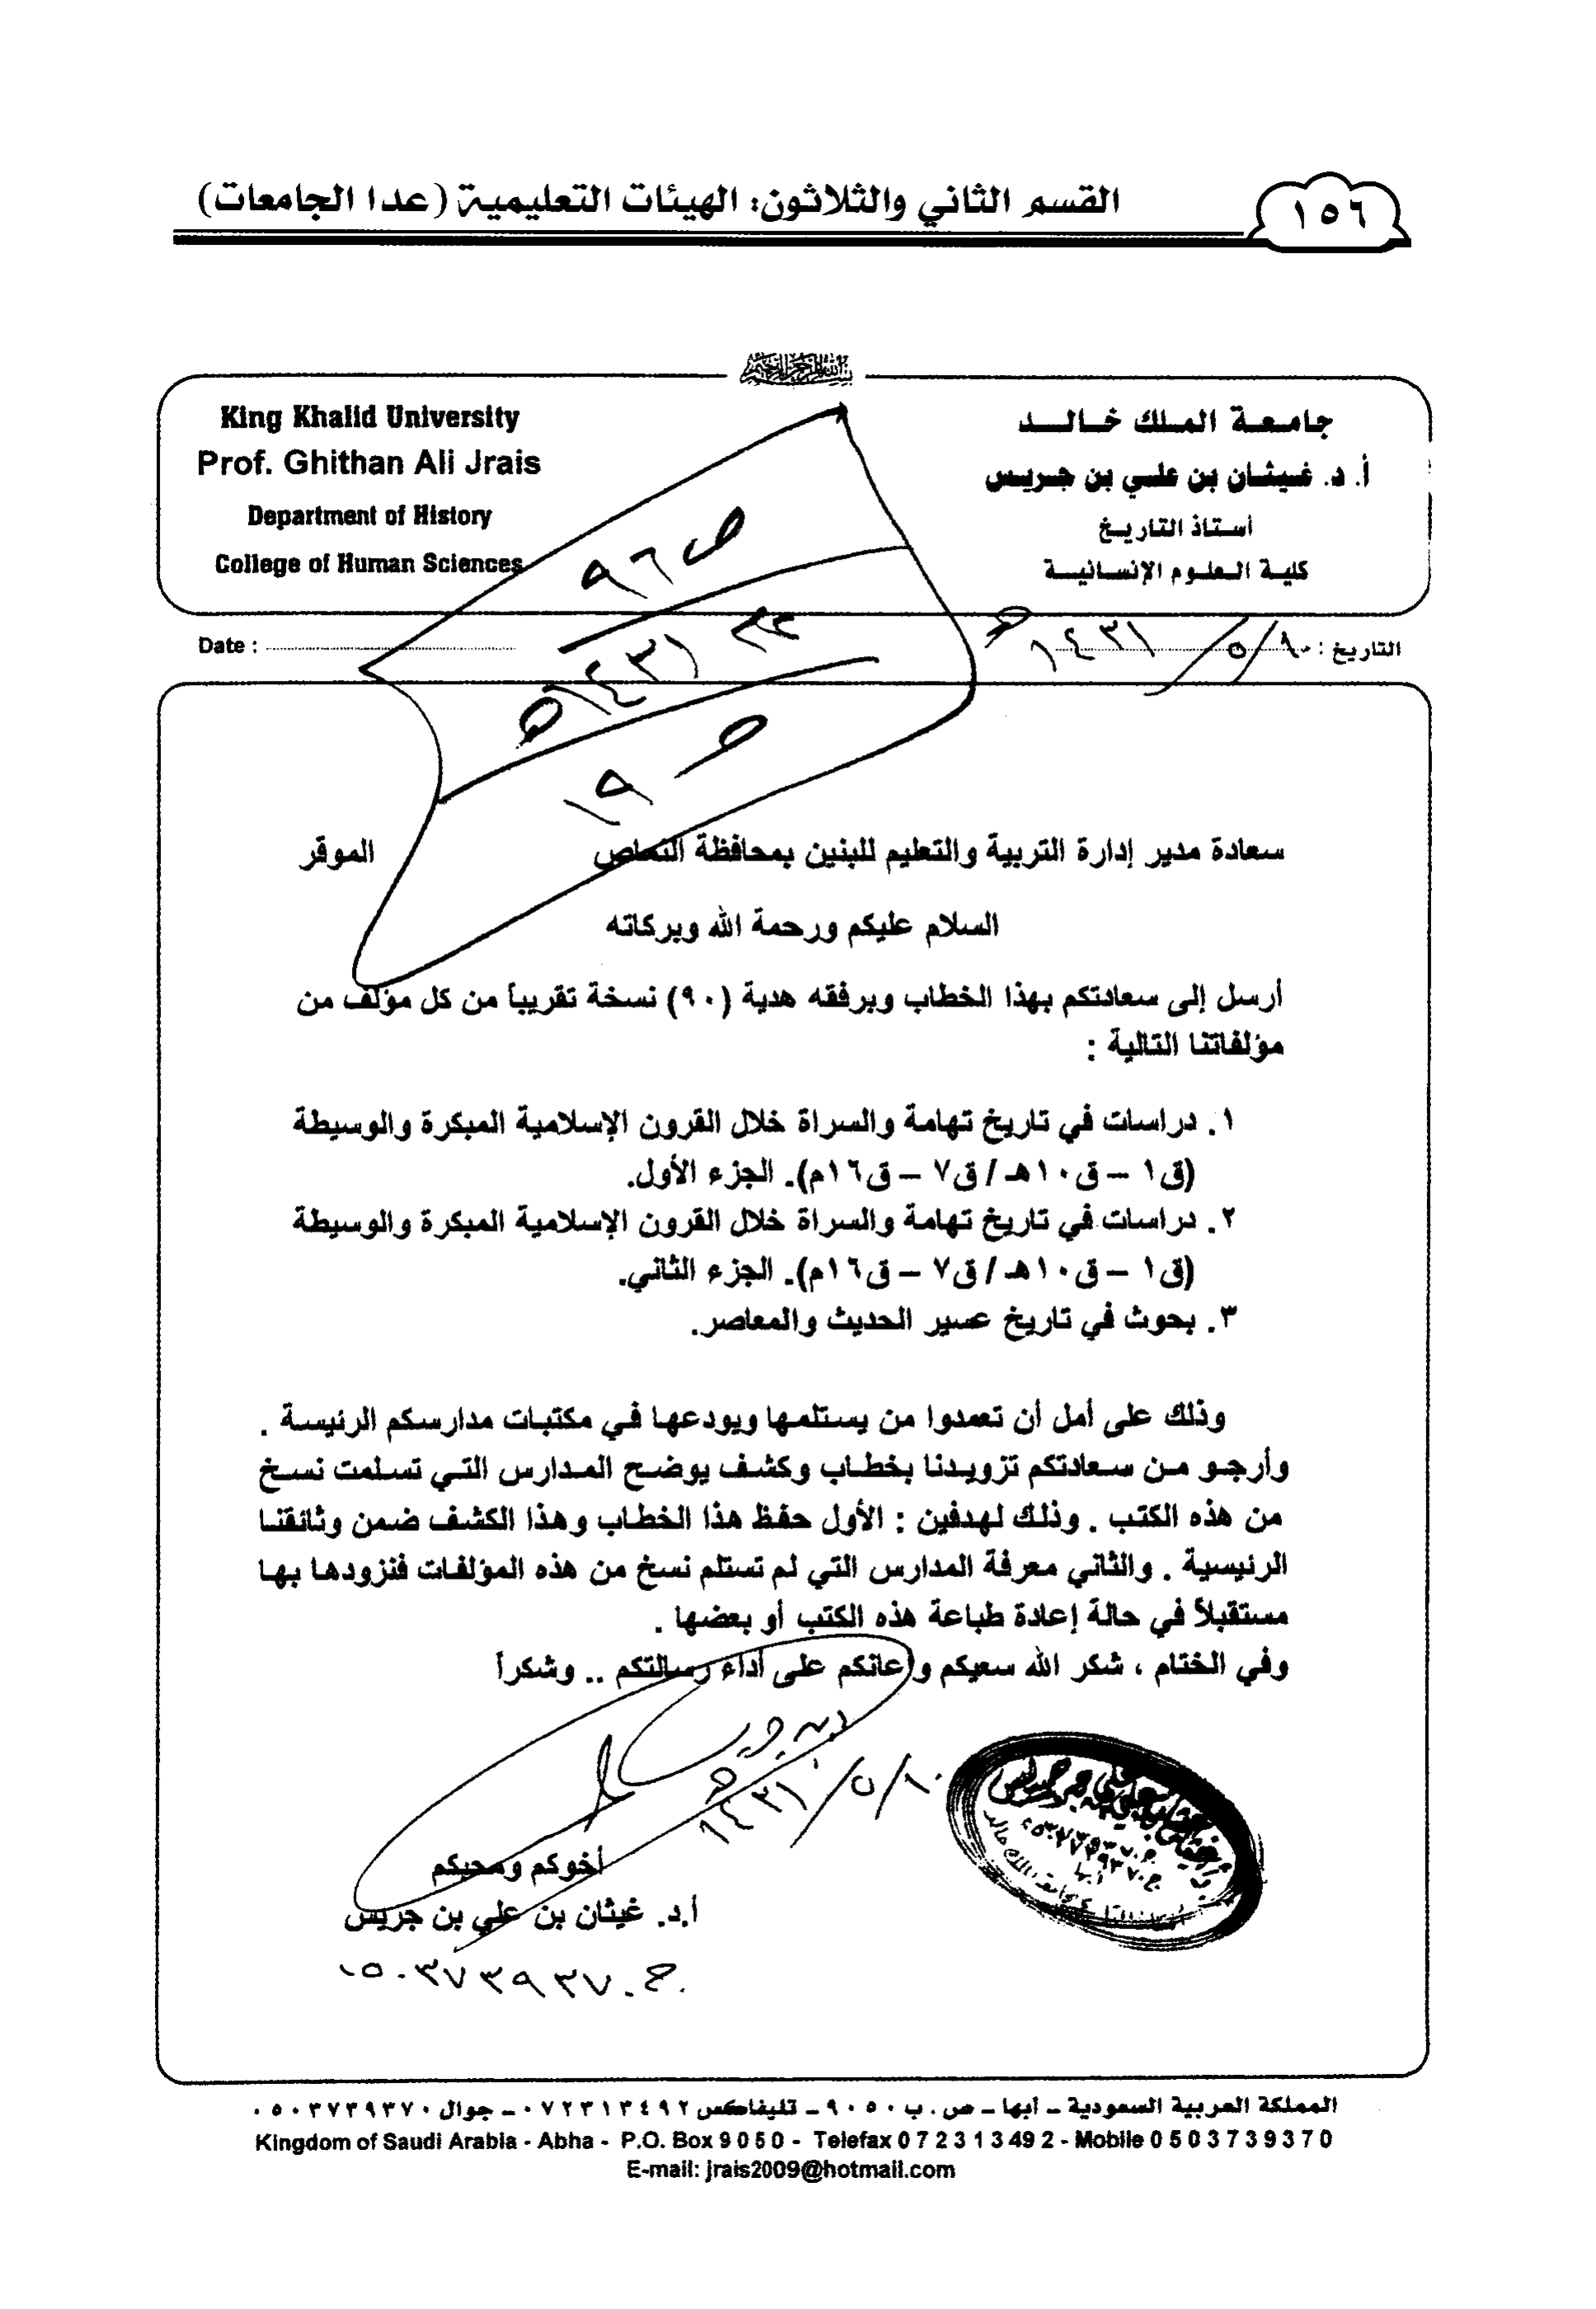 ١٥٦
القسم الثاني والثلاثون: الهيئات التعليمية (عدا الجامعات)
بسم الله الرحمن الرحيم
جامعة الملك خالد
أ. د. غيثان بن علي بن جريس
أستاذ التاريخ
كلية العلوم الإنسانية
King Khalid University
Prof. Ghithan Ali Jrais
Department of History
College of Human Sciences
ص ٩٦
١٤٣١ هـ
ص ١٩
التاريخ : ١٠/ ٥/ ١٤٣١ هـ
Date :
سعادة مدير إدارة التربية والتعليم للبنين بمحافظة النماص الموقر
السلام عليكم ورحمة الله وبركاته
أرسل إلى سعادتكم بهذا الخطاب وبرفقه هدية (٩٠) نسخة تقريباً من كل مؤلف من
مؤلفاتنا التالية :
١. دراسات في تاريخ تهامة والسراة خلال القرون الإسلامية المبكرة والوسيطة
(ق١ – ق١٠هـ / ق٧ – ق١٦م). الجزء الأول.
٢. دراسات في تاريخ تهامة والسراة خلال القرون الإسلامية المبكرة والوسيطة
(ق١ – ق١٠هـ / ق٧ – ق١٦م). الجزء الثاني.
٣. بحوث في تاريخ عسير الحديث والمعاصر.
وذلك على أمل أن تعمدوا من يستلمها ويودعها في مكتبات مدارسكم الرئيسة .
وأرجو من سعادتكم تزويدنا بخطاب وكشف يوضح المدارس التي تسلمت نسخ
من هذه الكتب . وذلك لهدفين : الأول حفظ هذا الخطاب وهذا الكشف ضمن وثائقنا
الرئيسية . والثاني معرفة المدارس التي لم تستلم نسخ من هذه المؤلفات فنزودها بها
مستقبلاً في حالة إعادة طباعة هذه الكتب أو بعضها .
وفي الختام ، شكر الله سعيكم وأعانكم على أداء رسالتكم .. وشكراً
١٠/ ٥/ ١٤٣١ هـ
أخوكم ومحبكم
أ.د. غيثان بن علي بن جريس
ج. ٠٥٠٣٧٣٩٣٧٠
المملكة العربية السعودية – أبها – ص . ب ٩٠٥٠ – تليفاكس ٠٧٢٣١٣٤٩٢ – جوال ٠٥٠٣٧٣٩٣٧٠
Kingdom of Saudi Arabia - Abha - P.O. Box 9 0 5 0 - Telefax 0 7 2 3 1 3 49 2 - Mobile 0 5 0 3 7 3 9 3 7 0
E-mail: jrais2009@hotmail.com